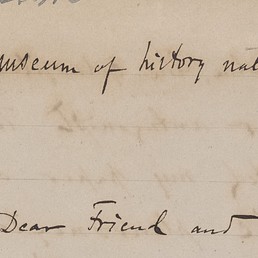 museum of history nat
Dear Friend and